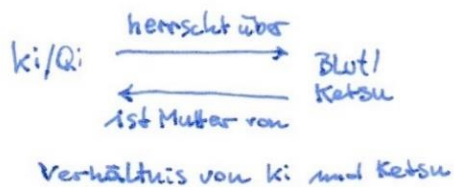 herrscht über
Ki/Qi
Blut/
Ketsu
ist Mutter von
Verhältnis von Ki und Ketsu